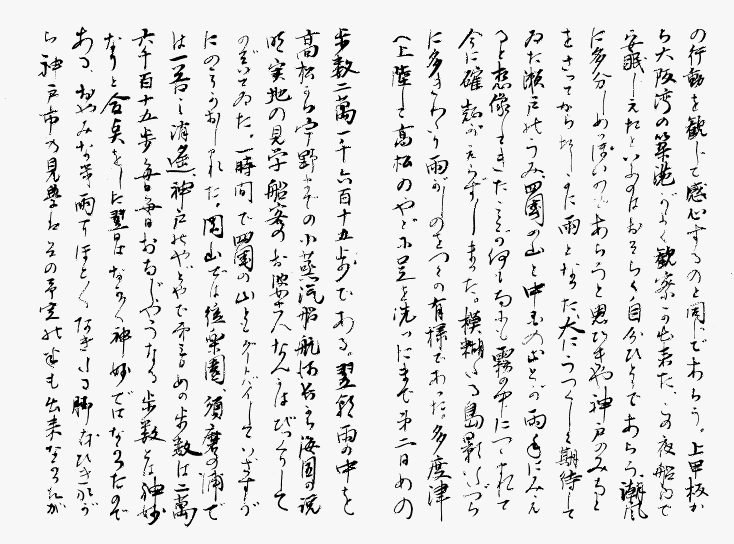 の行動を観じて感心するのと同じであらう。上甲板か
ら大阪湾の築港がよく観察が出来た、この夜船中で
安眠しえたといふのはおそらく自分ひとりであらう、潮風
に多分しめつぽいのであらうと思ひきや神戸のみなと
をさつてからたしかに雨となつた、大にうつくしと期待して
ゐた瀬戸のうみ、四国の山と中国の山とが雨手にみえ
ると想像してきたこが何もかも霧の中につゝまれて
今に確認がえられずしまつた。模糊たる島影いくつ
に多きくわり雨がしのをつくの有様であつた。多度津
へ上陸して高松のやどに足を洗つたまで第二日めの
歩数二萬一千六百十五歩である。翌朝雨の中を
高松から宇野までの小蒸汽船航海から海国の説
明実地の見学船客のお婆さんなんかはびつくりして
のぞいてゐた。一時間で四国の山とグードバイしていさすが
にのこりおしまれた。岡山では後楽園、須磨の浦で
は一番に逍遙、神戸のやどやで第三日めの歩数は二萬
六千百十五歩毎日毎日おなじやうなる歩数とは神妙
なりと合点をした翌日はなかなか神妙ではなかつたので
ある、おやみなき雨でほとんどなき出す脚をひきながが
ら神戸市の見学はその予定の半も出来なかつたが